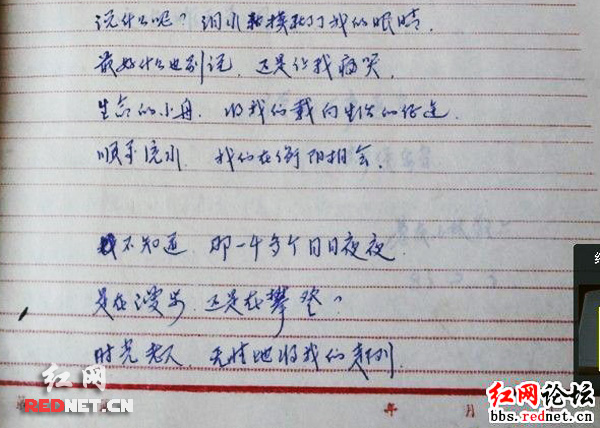 说什么呢？泪水黏模糊了我们眼睛，
最好什么也别说，还是让我痛哭，
生命的小舟，将我们载向生活的征途，
顺乎流水，我们在衡阳相会，
我不知道，那一千多个日日夜夜，
是在漫步，还是在攀登？
时光老人，无情地将我们
红网
REDNET.CN
年 月
红网论坛
bbs.rednet.cn